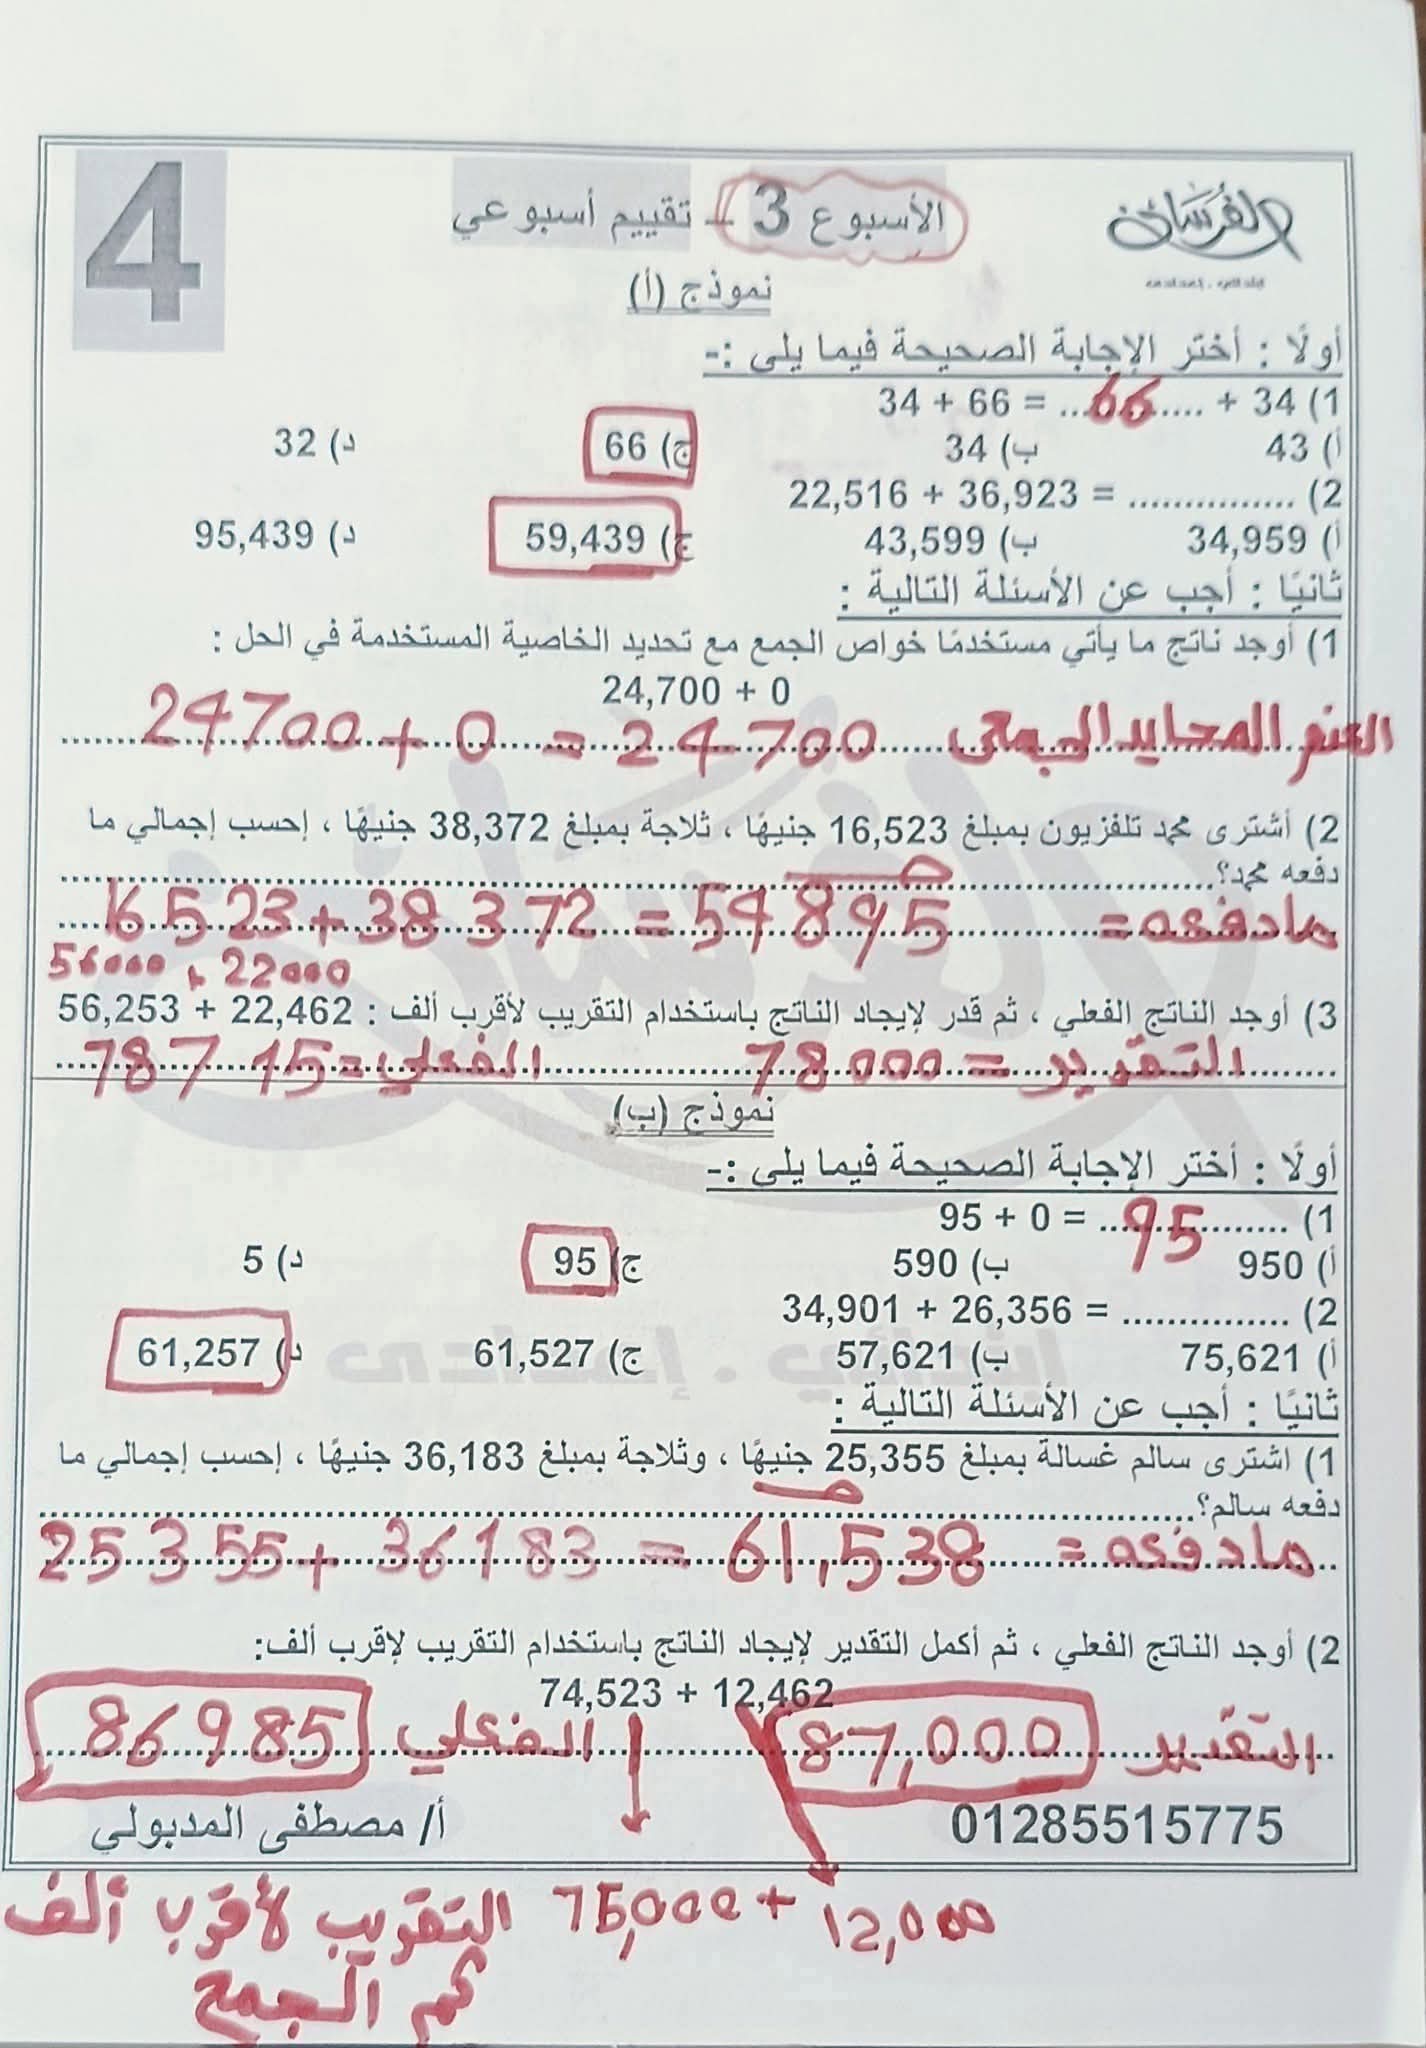 الفرسان
ابتدائي . إعدادى
الأسبوع 3 – تقييم أسبوعي
4
نموذج (أ)
أولًا : أختر الإجابة الصحيحة فيما يلى :-
1) 34 + ...66... = 66 + 34
أ) 43 ب) 34 ج) 66 د) 32
2) ............... = 36,923 + 22,516
أ) 34,959 ب) 43,599 ج) 59,439 د) 95,439
ثانيًا : أجب عن الأسئلة التالية :
1) أوجد ناتج ما يأتي مستخدمًا خواص الجمع مع تحديد الخاصية المستخدمة في الحل :
24,700 + 0
24700 + 0 = 24700 العنصر المحايد الجمعى
2) أشترى محمد تلفزيون بمبلغ 16,523 جنيهًا ، ثلاجة بمبلغ 38,372 جنيهًا ، إحسب إجمالي ما
دفعه محمد؟
مادفعه = 16523 + 38372 = 54895
56000 + 22000
3) أوجد الناتج الفعلي ، ثم قدر لإيجاد الناتج باستخدام التقريب لأقرب ألف : 56,253 + 22,462
التقريب = 78000 الفعلي = 78715
نموذج (ب)
أولًا : أختر الإجابة الصحيحة فيما يلى :-
1) 95 + 0 = ...95...
أ) 950 ب) 590 ج) 95 د) 5
2) ............... = 26,356 + 34,901
أ) 75,621 ب) 57,621 ج) 61,527 د) 61,257
ثانيًا : أجب عن الأسئلة التالية :
1) اشترى سالم غسالة بمبلغ 25,355 جنيهًا ، وثلاجة بمبلغ 36,183 جنيهًا ، إحسب إجمالي ما
دفعه سالم؟
مادفعه = 25355 + 36183 = 61,538
2) أوجد الناتج الفعلي ، ثم أكمل التقدير لإيجاد الناتج باستخدام التقريب لإقرب ألف:
74,523 + 12,462
التقدير 87,000 الفعلي 86985
01285515775 أ/ مصطفى المدبولي
75,000 + 12,000 التقريب لأقرب ألف
ثم الجمع